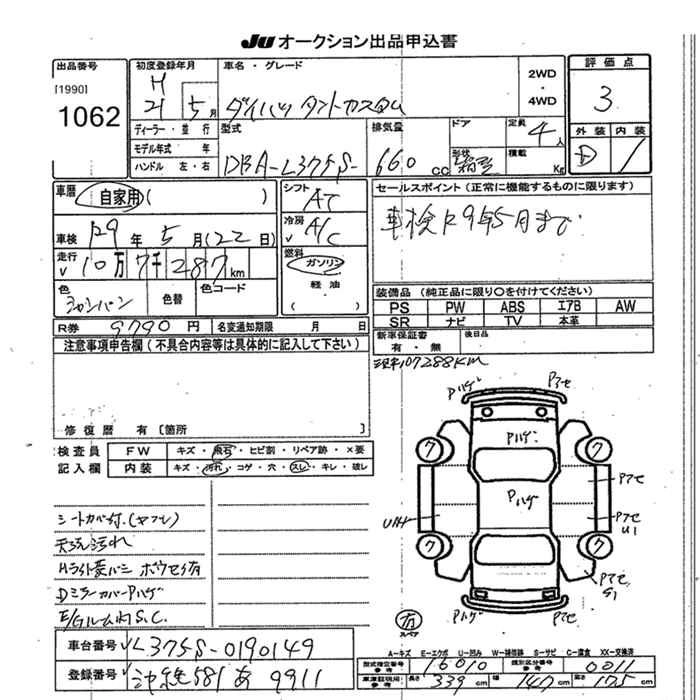 JU オークション出品申込書
出品番号
[1990]
1062
初度登録年月
H
21 5月
車名・グレード
ダイハツ タントカスタム
2WD
・
4WD
評価点
3
外装 内装
D
ディーラー・並行
モデル年式 年
ハンドル 左・右
型式
DBA-L375S-
排気量
660 cc
ドア
形状
箱型
定員
4人
積載
Kg
車歴
自家用( )
車検 R9年 5月(22日)
走行 10万7千287km
色
シャンパン
色替
色コード
R券 9790円 名変通知期限 月 日
シフト
AT
冷房
A/C
燃料
ガソリン
・
軽油
( )
セールスポイント(正常に機能するものに限ります)
車検R9年5月まで
装備品(純正品に限り○を付けてください)
PS PW ABS エアB AW
SR ナビ TV 本革
新車保証書
有・無
後日品
107288KM
注意事項申告欄(不具合内容等は具体的に記入して下さい)
修復歴 有〔箇所 〕
検査員
記入欄
FW キズ・飛石・ヒビ割・リペア跡・×要
内装 キズ・汚れ・コゲ・穴・スレ・キレ・破レ
シートカバー付.(ヤブレ)
天張汚れ
Dミラーカバー Pハゲ
E/Gルーム内S.C.
Pハゲ
Pアセ
Pハゲ
Pハゲ
7
7
7
7
Pアセ
Pアセ
U1
Pアセ
S1
Pハゲ
Pアセ
有
スペア
A-キズ E-エクボ U-凹み W-補修跡 S-サビ C-腐食 XX-交換済
車台番号 L375S-0190149
登録番号 沖縄581あ9911
型式指定番号
参考
16010
類別区分番号
参考
0011
車車証説明用
参考
長さ 339cm 幅 147cm 高さ 175cm